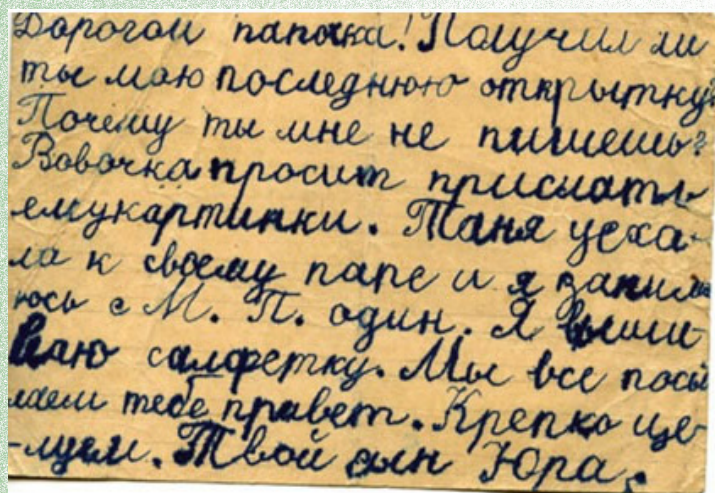 Дорогой папочка! Получил ли
ты мою последнюю открытку?
Почему ты мне не пишешь?
Вовочка просит прислать
ему картинки. Таня уеха-
ла к своему папе и я занима
юсь с М. П. один. Я выши-
ваю салфетку. Мы все посы
лаем тебе привет. Крепко це-
-луем. Твой сын Юра.